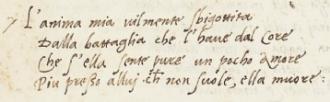 L'anima mia vilmente sbigottita
Dalla battaglia che l'have dal Core
Che s'ella sente pure un pocho Amore
Piu presso allui ch non suole, ella muore: